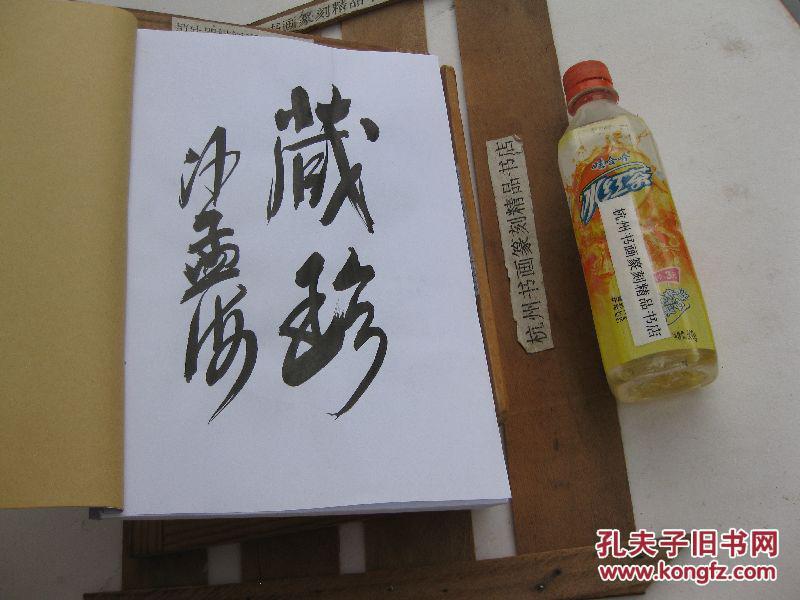 书画篆刻精品书
藏珍
沙孟海
杭州书画篆刻精品书店
娃哈哈
冰红茶
杭州书画篆刻精品书店
孔夫子旧书网
www.kongfz.com